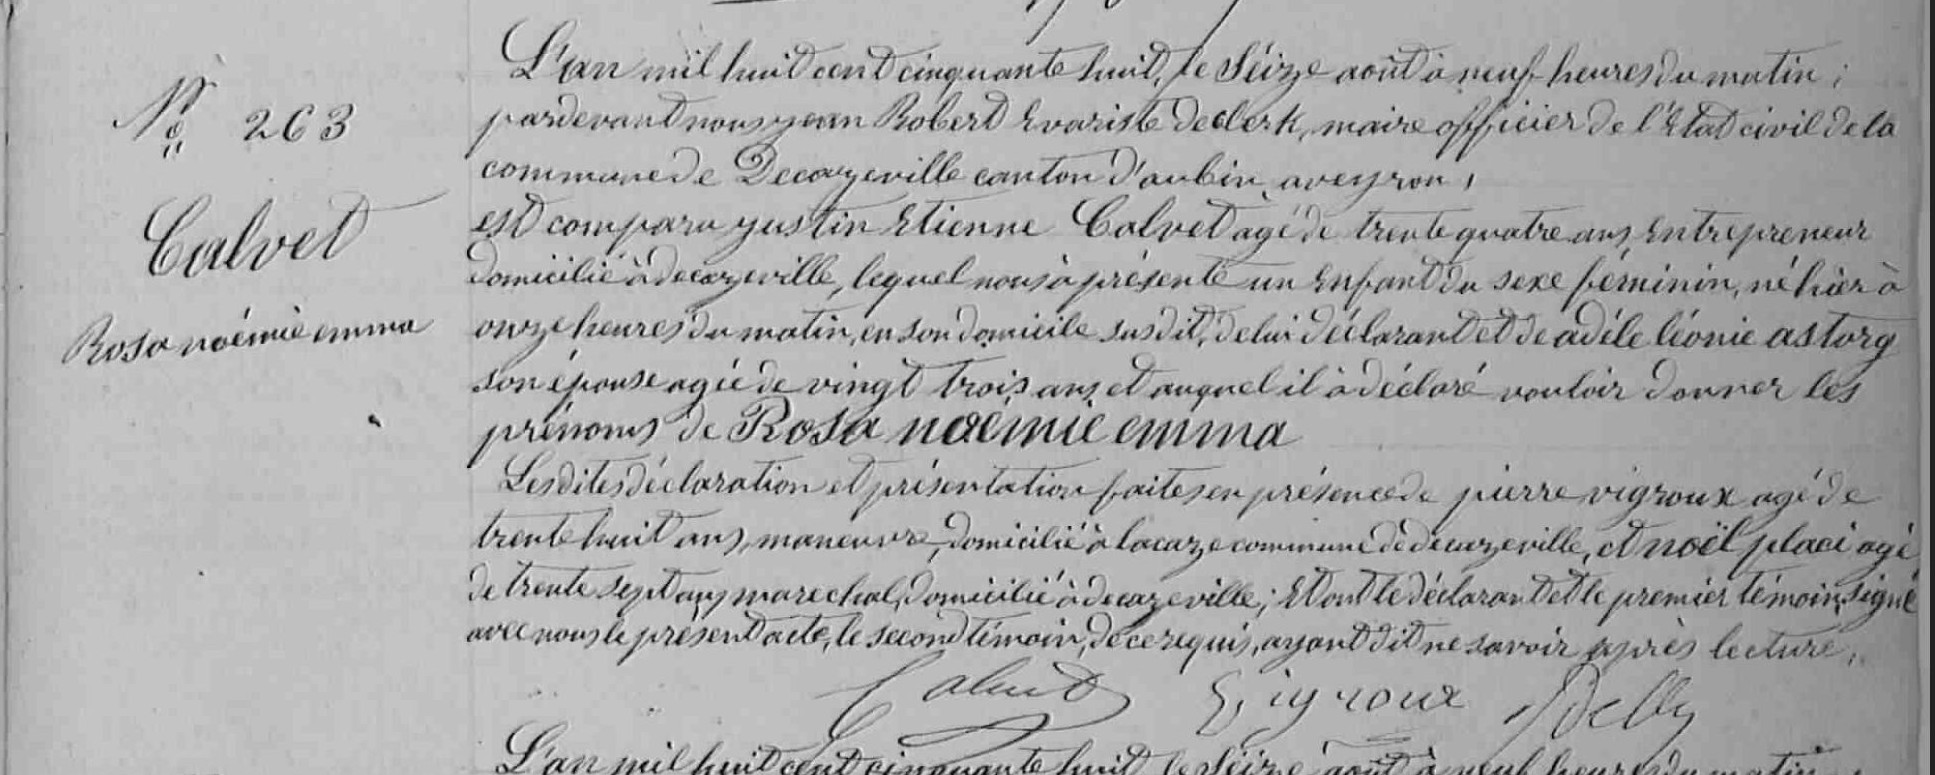 N° 263
Calvet
Rosa noémie emma
L'an mil huit cent cinquante huit, le Seize août à neuf heures du matin;
pardevant nous jean Robert Evariste declerk, maire officier de l'Etat civil de la
commune de Decazeville canton d'aubin, aveyron,
est comparu justin Etienne Calvet agé de trente quatre ans Entrepreneur
domicilié à decazeville, lequel nous à présenté un Enfant du sexe féminin, né hier à
onze heures du matin, en son domicile susdit, de lui déclarant et de adéle léonie astorg
son épouse agée de vingt trois ans et auquel il à déclaré vouloir donner les
prénoms de Rosa noémie emma
Lesdites déclaration et présentation faites en présence de pierre vigroux agé de
trente huit ans, maneuvre, domicilié à lacaze commune de decazeville, et noël placi agé
de trente sept ans marechal, domicilié à decazeville; Et ont le déclarant et le premier témoin, signé
avec nous le présent acte, le second témoin, de ce requis, ayant dit ne savoir après lecture.
Calvet Vigroux
L'an mil huit cent cinquante huit le Seize août à neuf heures du matin